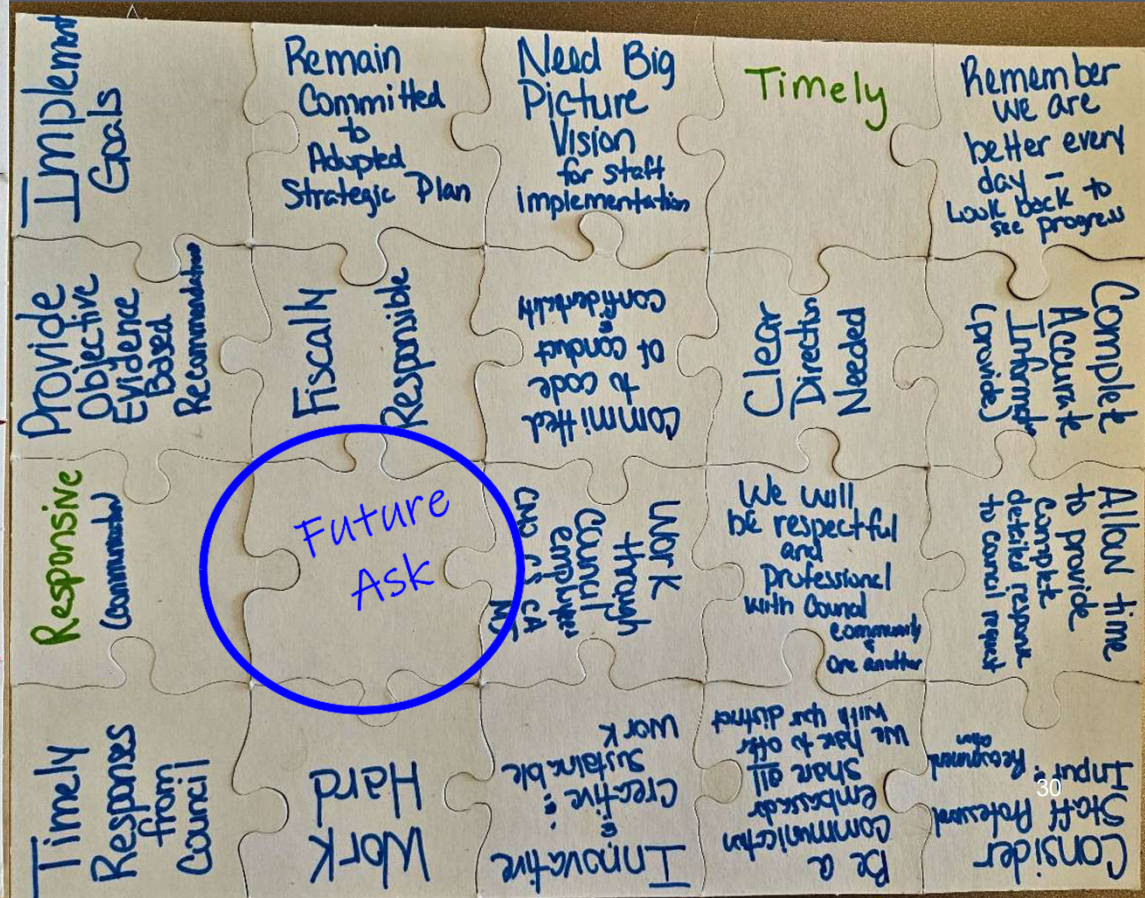 Implement
Goals
Remain
Committed
to
Adopted
Strategic Plan
Need Big
Picture
Vision
for staff
implementation
Timely
Remember
we are
better every
day -
Look back to
see progress
Provide
Objective
Evidence
Based
Recommendation
Fiscally
Responsible
Committed
to code
of conduct
&
Confidentiality
Clear
Direction
Needed
Complete
Accurate
Information
(provide)
Responsive
Communication
Future
Ask
Work
through
Council
employees
CMO CS CA
MJ
We will
be respectful
and
professional
with Council
community
&
one another
Allow time
to provide
complete
detailed response
to council request
Timely
Responses
from
Council
Work
Hard
Innovative
&
Creative &
Sustainable
Work
Be a
Communication
embassador
share all
we have to offer
with your district
Consider
Staff Professional
Input &
30